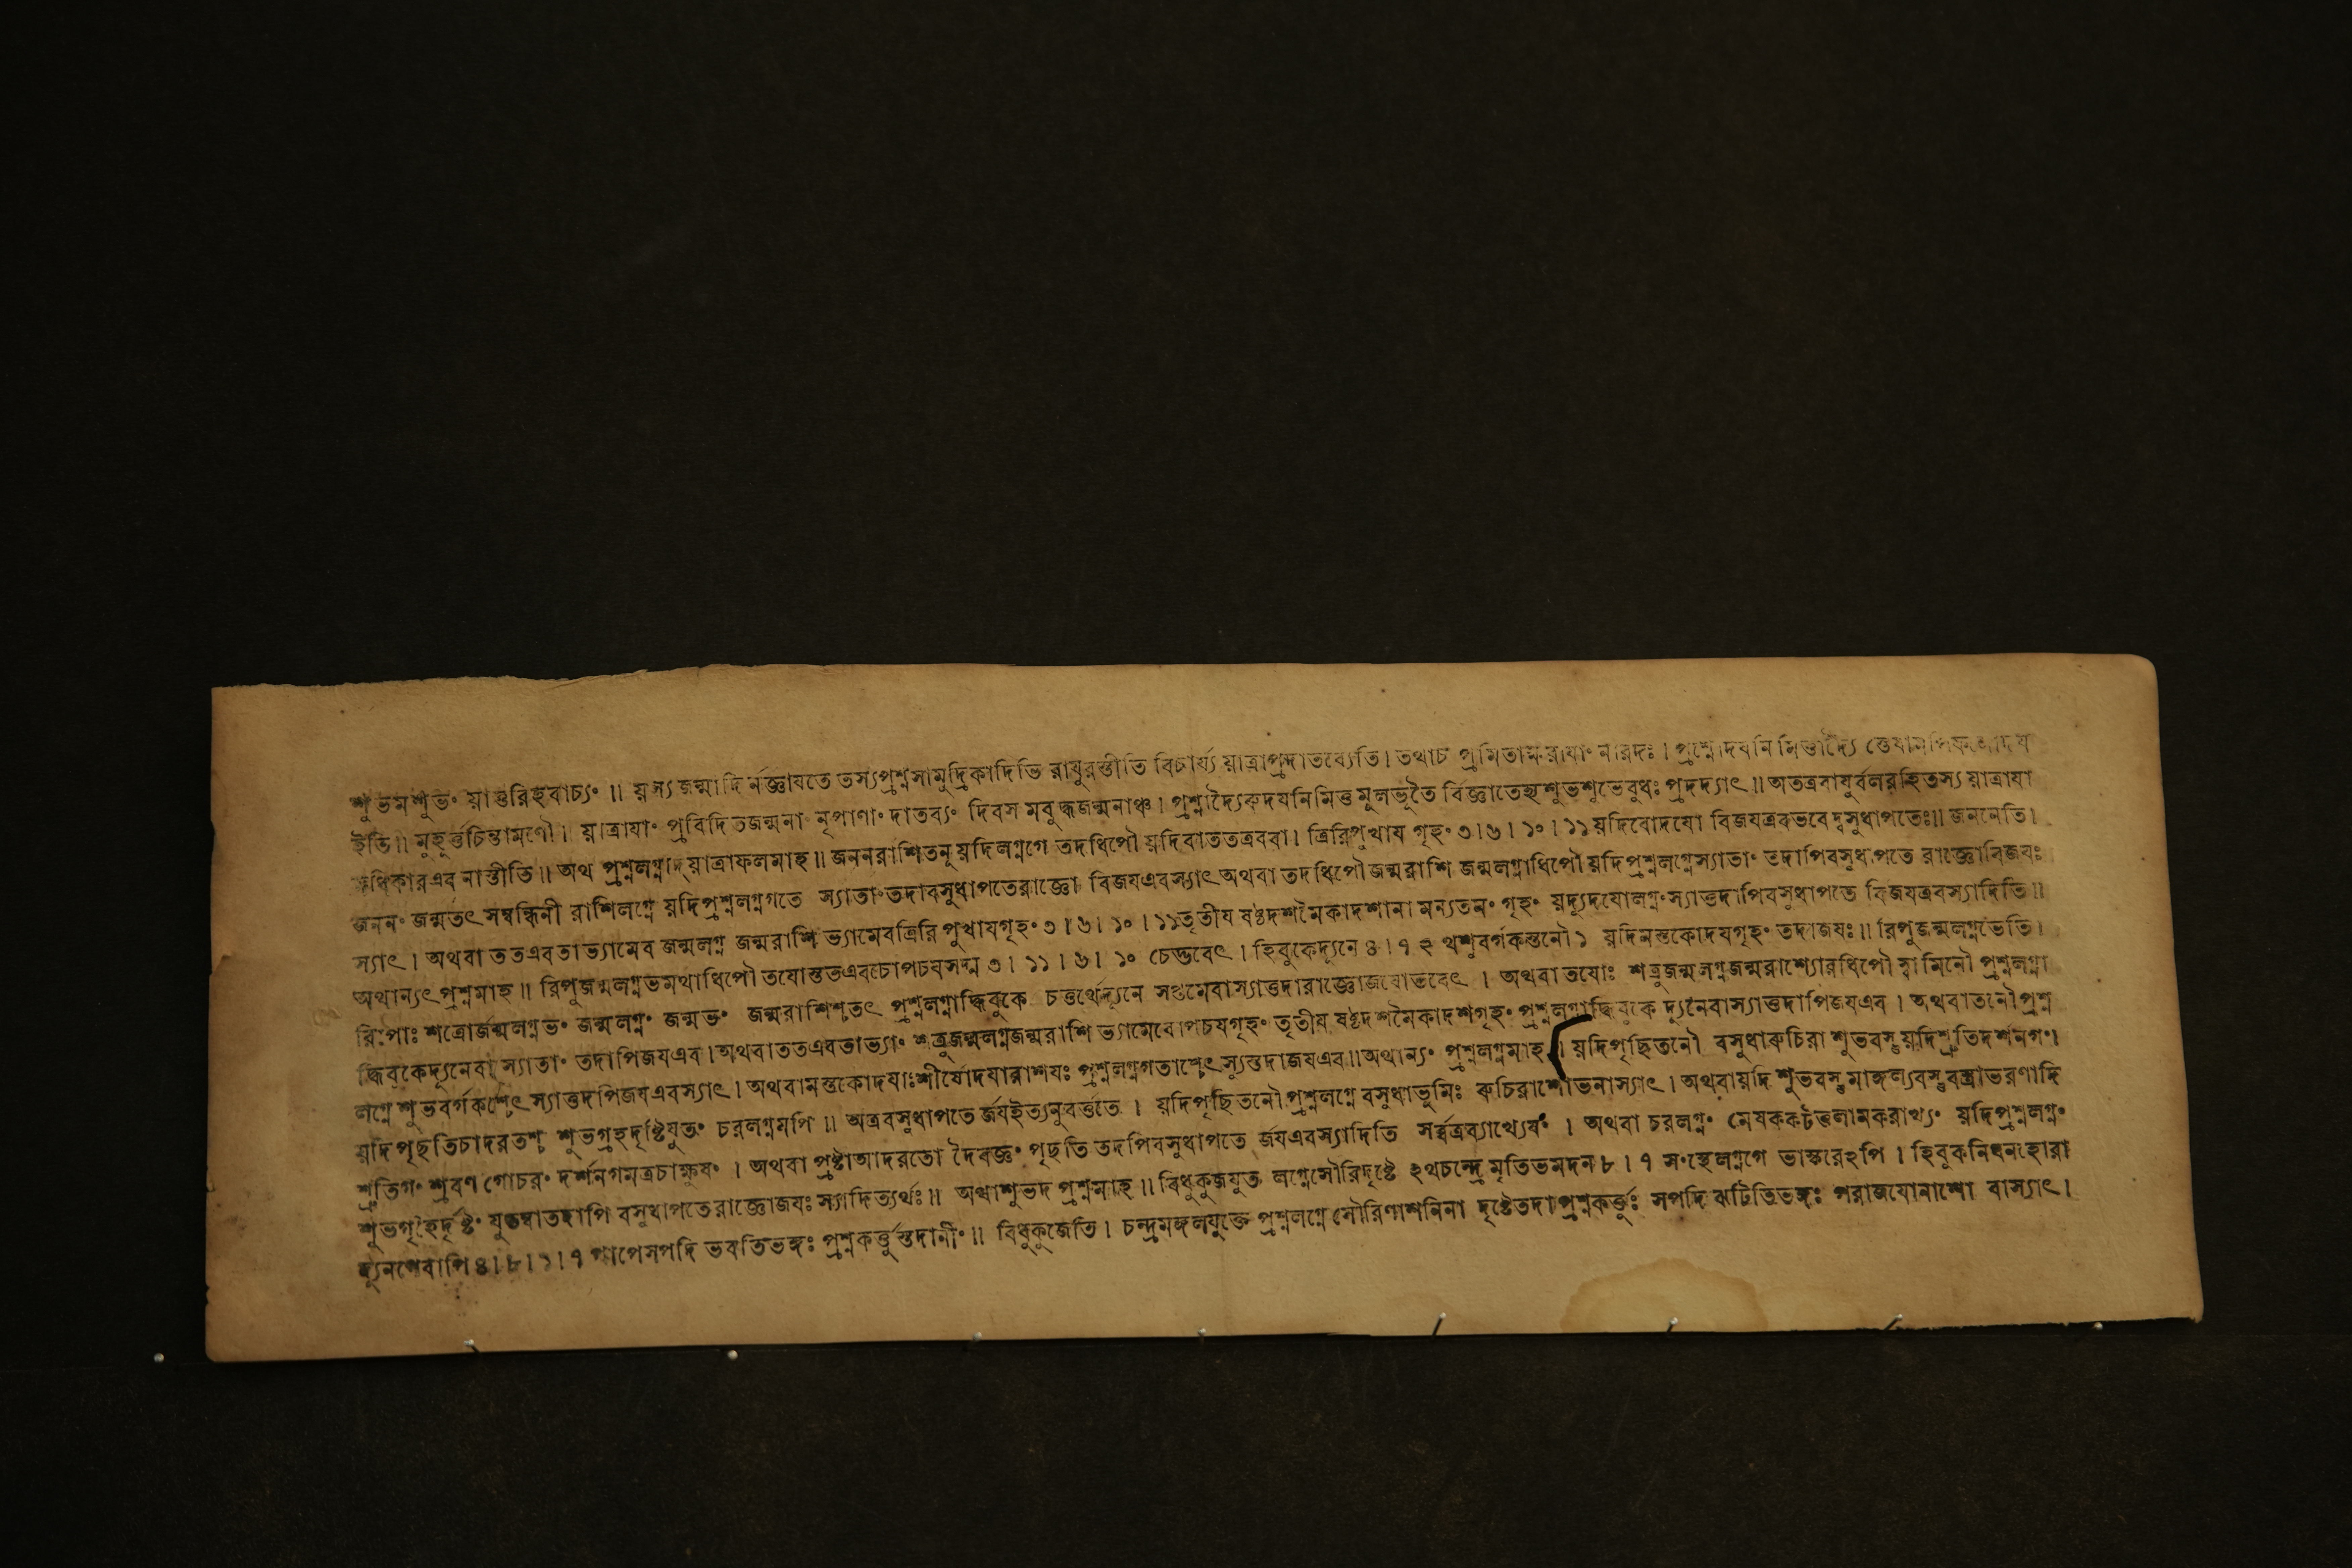 শুভমশুভং য়াত্তরিহবাচ্যং ॥ য়স্যজন্মাদি র্নজ্ঞাযতে তস্যপ্রশ্নসামুদ্রিকাদিভি রাযুরস্তীতি বিচার্য্য য়াত্রাপ্রদাতব্যেতি। তথাচ প্রমিতাক্ষরাযাং নারদঃ। প্রশ্নোদযনি মিত্তাদ্যৈ
ইতি॥ মুহুর্ত্তচিন্তামণৌ। য়াত্রাযাং প্রবিদিতজন্মনাং নৃপাণাং দাতব্যং দিবস মবুদ্ধজন্মনাঞ্চ। প্রশ্নাদ্যৈরুদযনিমিত্ত মুলভুতৈ র্বিজ্ঞাতেহ্যশুভশুভেবুধঃ প্রদদ্যাৎ॥ অতত্রবাযুর্বলরহিতস্য য়াত্রাযা
মধিকারএব নাস্তীতি॥ অথ প্রশ্নলগ্নাদ্য়াত্রাফলমাহ॥ জননরাশিতনূ য়দিলগ্নগে তদধিপৌ য়দিবাততত্রববা। ত্রিরিপুখায গৃহং ৩।৬।১০।১১ য়দিবোদযো বিজযত্রবভবে দ্বসুধাপতেঃ॥ জননেতি।
জননং জন্মতৎ সম্বন্ধিনী রাশিলগ্নে য়দিপ্রশ্নলগ্নগতে স্যাতাং তদাবসুধাপতেরাজ্ঞো বিজযএবস্যাৎ অথবা তদধিপৌ জন্মরাশি জন্মলগ্নাধিপৌ য়দিপ্রশ্নলগ্নেস্যাতাং তদাপিবসুধাপতে রাজ্ঞোবিজযঃ
স্যাৎ। অথবা ততএবতাভ্যামেব জন্মলগ্ন জন্মরাশি ভ্যামেবত্রিরি পুখাযগৃহং ৩।৬।১০।১১ তৃতীয ষষ্টদশমৈকাদশানা মন্যতমং গৃহং য়দ্যুদযোলগ্নংস্যাত্তদাপিবসুধাপতে র্বিজযত্রবস্যাদিতি॥
অথান্যৎ প্রশ্নমাহ॥ রিপুজন্মলগ্নভমথাধিপৌ তযোস্ততএবচোপচযসদ্ম ৩।১১।৬।১০ চেদ্ভবেৎ। হিবুকেদ্যুনে ৪।৭ ২ থশুবর্গকস্তনৌ ১ য়দিমস্তকোদযগৃহং তদাজযঃ॥ রিপুজন্মলগ্নভেতি।
রিপোঃ শত্রোর্জন্মলগ্নভং জন্মলগ্নং জন্মভং জন্মরাশিশ্তৎ প্রশ্নলগ্নাদ্ধিবুকে চতুর্থেদ্যুনে সপ্তমেবাস্যাত্তদারাজ্ঞোজযোভবেৎ। অথবা তযোঃ শত্রুজন্মলগ্নজন্মরাশ্যোরধিপৌ স্বামিনৌ প্রশ্নলগ্না
দ্ধিবুকেদ্যুনেবা স্যাতাং তদাপিজযএব। অথবাততএবতাভ্যাং শত্রুজন্মলগ্নজন্মরাশি ভ্যামেবোপচযগৃহং তৃতীয ষষ্টদশমৈকাদশগৃহং প্রশ্নলগ্নাদ্ধিবুকে দ্যুনেবাস্যাত্তদাপিজযএব। অথবাতনৌপ্রশ্ন
লগ্নে শুভবর্গকশ্চেৎ স্যাত্তদাপিজযএবস্যাৎ। অথবামস্তকোদযাঃশীর্ষোদযারাশযঃ প্রশ্নলগ্নগতাশ্চেৎ স্যুস্তদাজযএব॥ অথান্যং প্রশ্নলগ্নমাহ। য়দিপৃছিতনৌ বসুধারুচিরা শুভবস্তু য়দিশ্রুতিদর্শনগং।
য়দিপৃছতিচাদরতশ্চ শুভগ্রহদৃষ্টিযুতং চরলগ্নমপি॥ অত্রবসুধাপতে র্জযইত্যনুবর্ত্ততে। য়দিপৃছিতনৌ প্রশ্নলগ্নে বসুধাভুমিঃ রুচিরাশোভনাস্যাৎ। অথবায়দি শুভবস্তু মাঙ্গল্যবস্তু বস্ত্রাভরণাদি
শ্রুতিগং শ্রবণ গোচরং দর্শনগমত্রচাক্ষুষং। অথবা প্রষ্টাআদরতো দৈবজ্ঞং পৃছতি তদপিবসুধাপতে র্জযএবস্যাদিতি সর্ব্বত্রব্যাখ্যেযং। অথবা চরলগ্নং মেষকর্কটতুলামকরাখ্যং য়দিপ্রশ্নলগ্নং
শুভগৃহৈর্দৃষ্টং যুতম্বাতদাপি বসুধাপতেরাজ্ঞোজযঃ স্যাদিত্যর্থঃ॥ অথাশুভদ প্রশ্নমাহ॥ বিধুকুজযুত লগ্নেসৌরিদৃষ্টে ২থচন্দ্রে মৃতিভমদন ৮।৭ সংস্থেলগ্নগে ভাস্করেঽপি। হিবুকনিধনহোরা
দ্যুনগেবাপি ৪।৮।১।৭ পাপেসপদি ভবতিভঙ্গঃ প্রশ্নকর্ত্তুস্তদানীং॥ বিধুকুজেতি। চন্দ্রমঙ্গলযুক্তে প্রশ্নলগ্নে সৌরিণাশনিনা দৃষ্টেতদাপ্রশ্নকর্ত্তুঃ সপদি ঝটিতিভঙ্গঃ পরাজযোনাশো বাস্যাৎ।